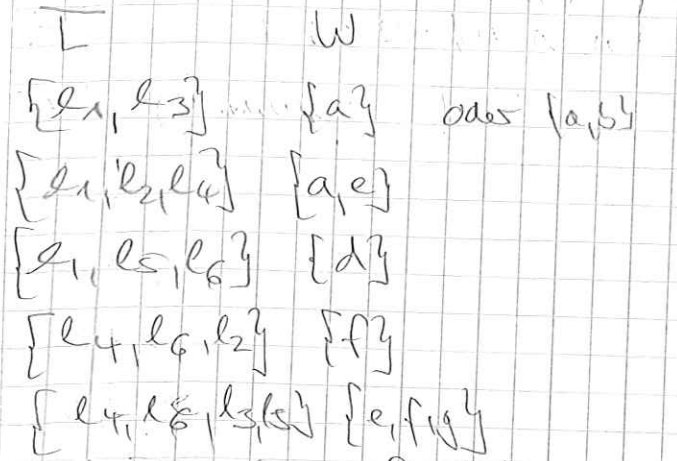 L̅ W
{l1, l3} {a} oder {a,b}
{l1, l2, l4} {a, e}
{l1, l5, l6} {d}
{l4, l6, l2} {f}
{l4, l6, l3, l5} {e, f, g}